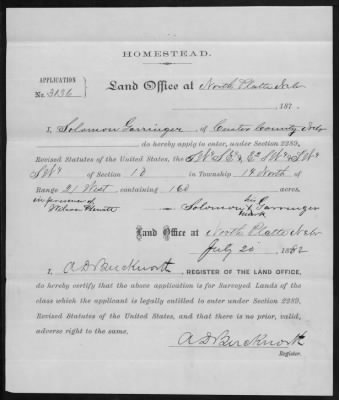 HOMESTEAD.
APPLICATION
No. 3136
Land Office at North Platte Neb
187
I, Solomon Garringer, of Custer County Neb
do hereby apply to enter, under Section 2289,
Revised Statutes of the United States, the
of Section 10 in Township 19 North of
Range 21 West, containing 160 acres.
in presence of
his
Solomon X Garringer
mark
Land Office at North Platte Neb
July 20 1882
I, A D Buckworth, REGISTER OF THE LAND OFFICE,
do hereby certify that the above application is for Surveyed Lands of the
class which the applicant is legally entitled to enter under Section 2289,
Revised Statutes of the United States, and that there is no prior, valid,
adverse right to the same.
A D Buckworth
Register.